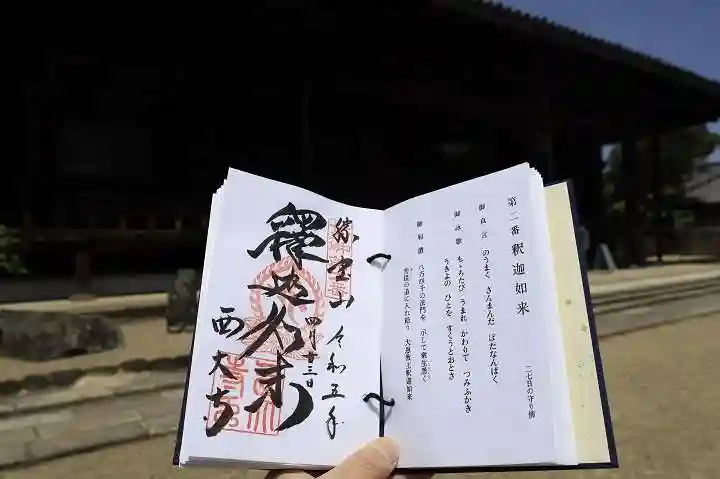 第二番 釈迦如来
二七日の守り佛
御真言 のうまく さんまんだ ぼだなんばく
御詠歌 もゝちたび うまれ かわりて つみふかき
うきよの ひとを すくうとおとさ
御和讃 八万四千の法門を 示して衆生悉く
菩提の道に入れ給う 大恩教主釈迦如来
勝宝山 令和五年
四月廿三日
釋迦如来
西大寺